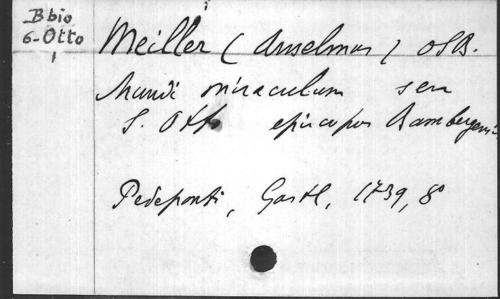 B bio
6-Otto
1
Meiller (Anselmus) OSB.
Mundi miraculum seu
S. Otto episcopus Bambergensis
Pedeponti, Gastl, 1739, 8°